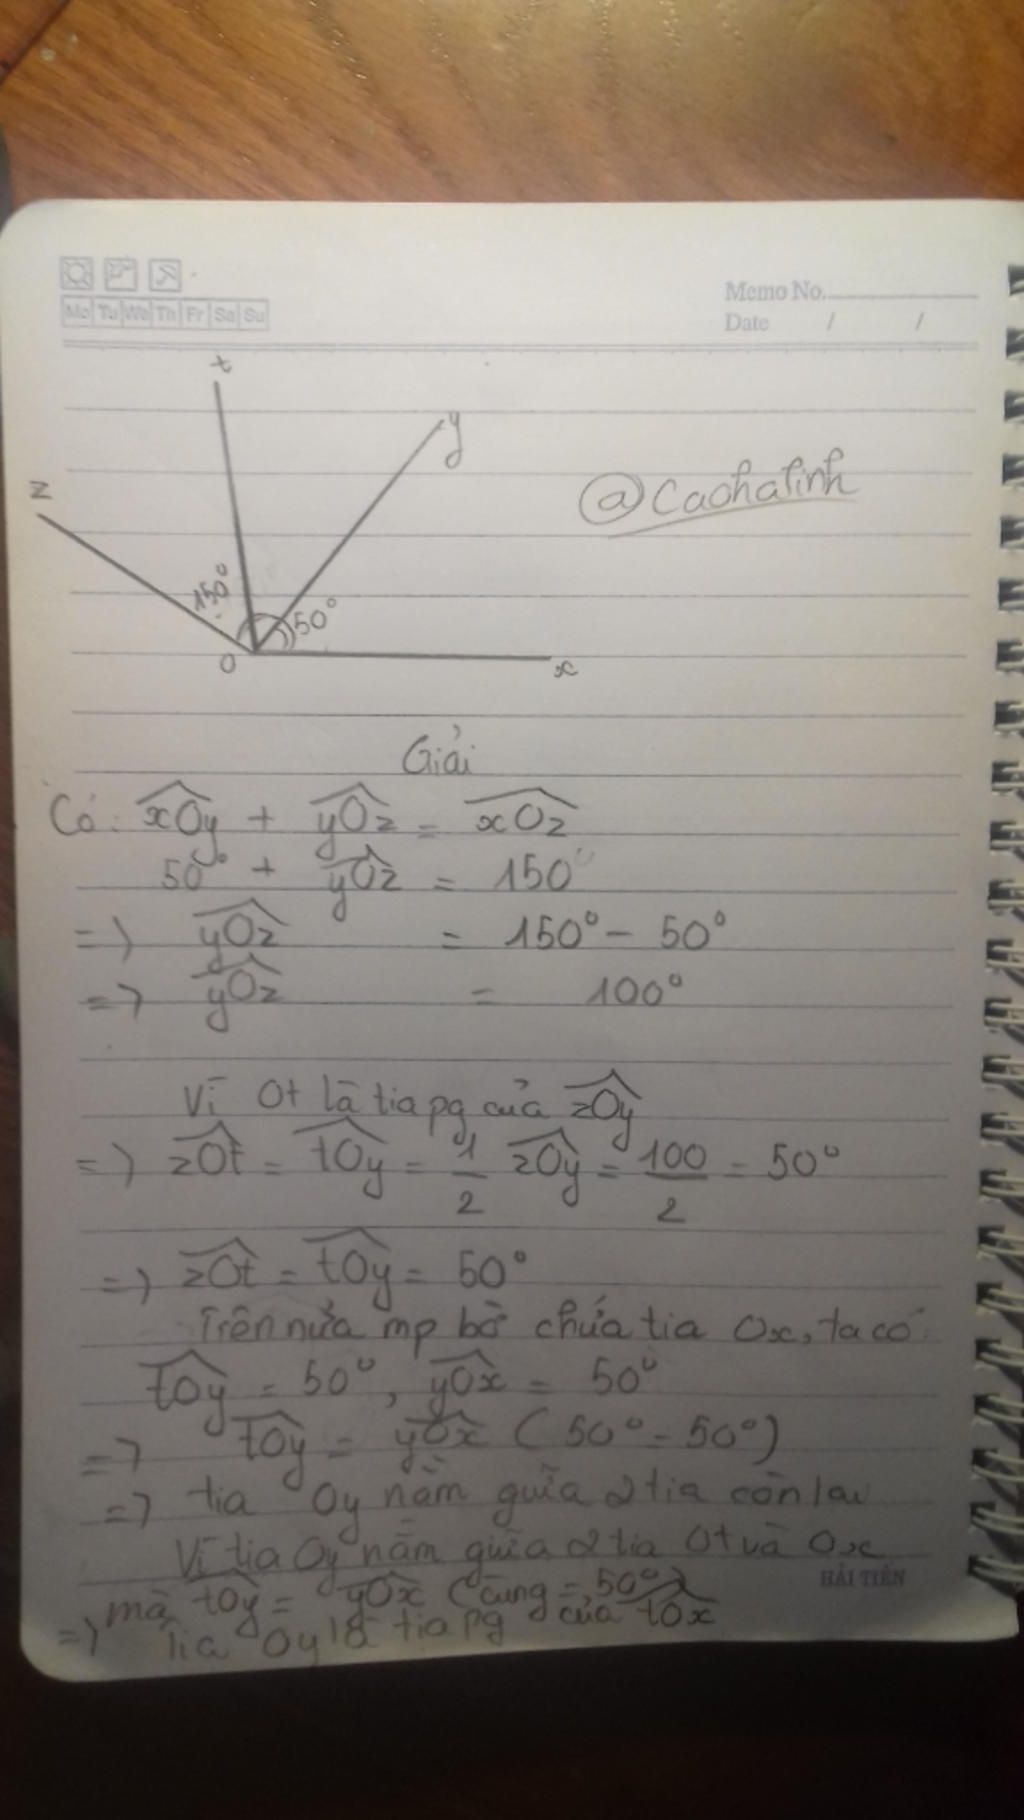 Memo No.
Mo Tu We Th Fr Sa Su
Date / /
t
y
z
@Caohalinh
150° 50°
O x
Giải
Có: xOy + yOz = xOz
50° + yOz = 150°
=> yOz = 150° - 50°
=> yOz = 100°
Vì Ot là tia pg của zOy
=> zOt = tOy = 1/2 zOy = 100/2 = 50°
=> zOt = tOy = 50°
Trên nửa mp bờ chứa tia Ox, ta có:
tOy = 50°, yOx = 50°
=> tOy = yOx (50° = 50°)
=> tia Oy nằm giữa 2 tia còn lại
Vì tia Oy nằm giữa 2 tia Ot và Ox
HẢI TIẾN
mà tOy = yOx (cùng = 50°)
=> Tia Oy là tia pg của tOx